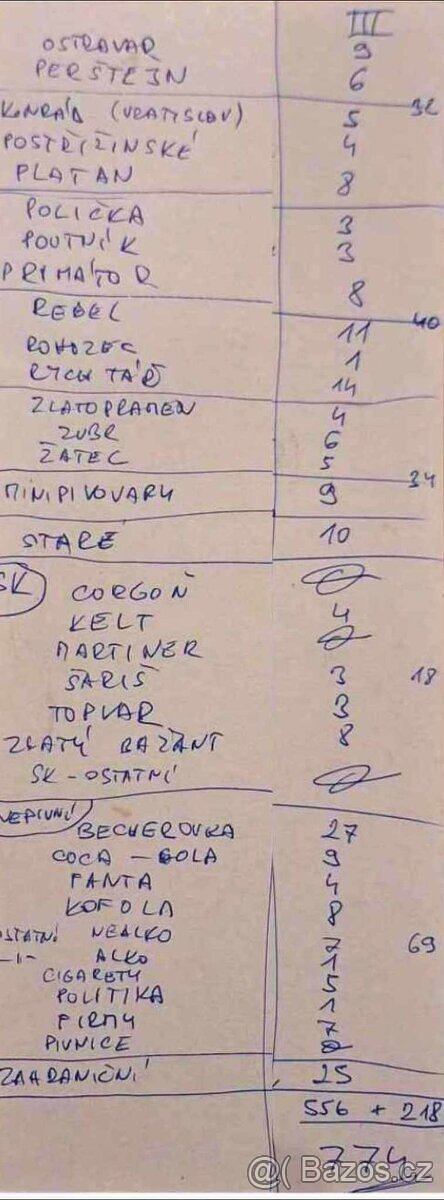 III
OSTRAVAR 9
PERŠTEJN 6
KONRÁD (VRATISLAV) 5 32
POSTŘIŽINSKÉ 4
PLATAN 8
POLIČKA 3
POUTNÍK 3
PRIMÁTOR 8
REBEL 11 40
ROHOZEC 1
RYCHTÁŘ 14
ZLATOPRAMEN 4
ZUBR 6
ŽATEC 5
MINIPIVOVARY 9 34
STARÉ 10
SK CORGOŇ 0
KELT 4
MARTINER 0
ŠARIŠ 3 18
TOPVAR 3
ZLATÝ BAŽANT 8
SK-OSTATNÍ 0
NEPIVNÍ
BECHEROVKA 27
COCA-COLA 9
FANTA 4
KOFOLA 8
OSTATNÍ NEALKO 7 69
-II- ALKO 1
CIGARETY 5
POLITIKA 1
FIRMY 7
PIVNICE
ZAHRANIČNÍ 25
556 + 218
774
@( Bazos.cz